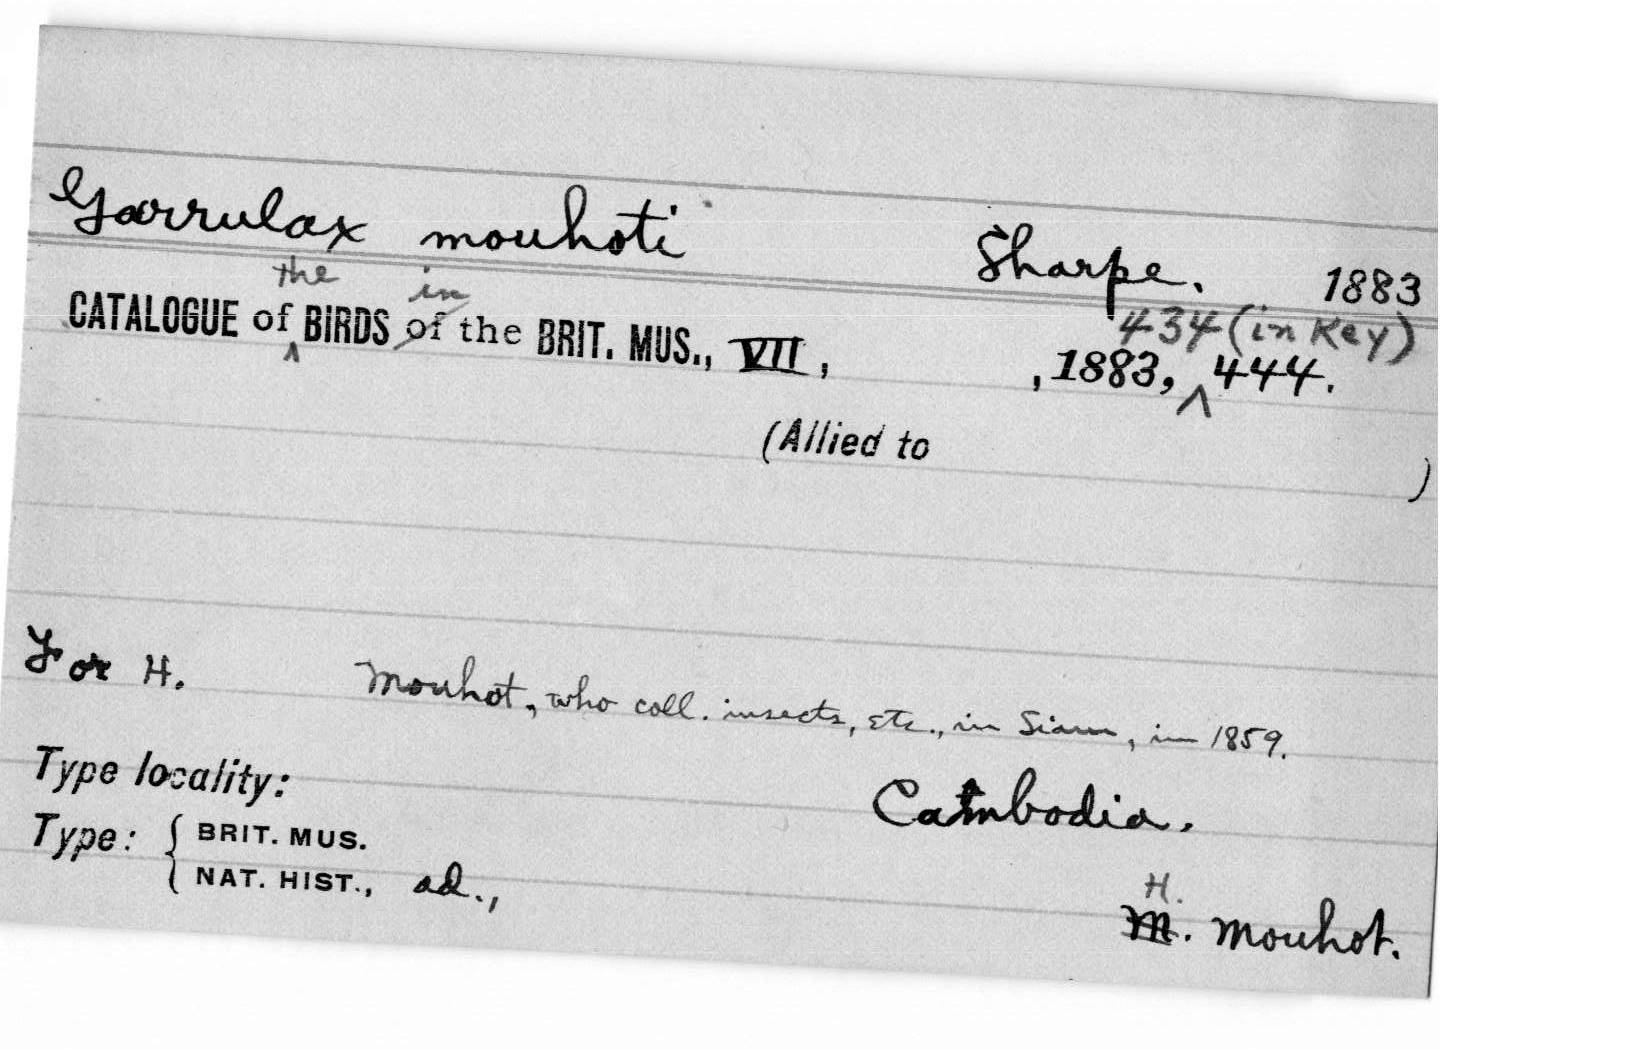 Garrulax mouhoti Sharpe. 1883
the in
CATALOGUE of ^ BIRDS of the BRIT. MUS., VII, , 1883, ^ 444.
434 (in Key)
(Allied to )
For H. Mouhot, who coll. insects, etc., in Siam, in 1859.
Type locality: Cambodia.
Type: { BRIT. MUS.
NAT. HIST., ad.,
H.
M. Mouhot.